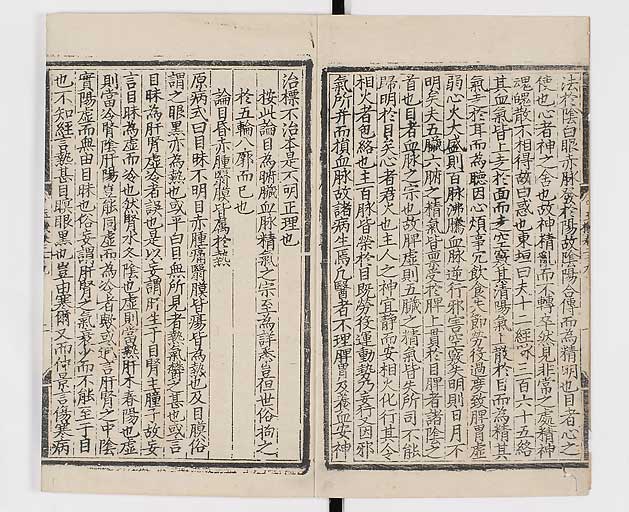 法於陰白眼赤脉法於陽故陰陽合傳而為精明也目者心之
使也心者神之舍也故神精亂而不轉卒然見非常之處精神
魂魄散不相得故曰惑也東垣曰夫十二經脉三百六十五絡
其血氣皆上走於面而走空竅其清陽氣上散於目而為精其
氣走於耳而為聽因心煩事冗飲食失節勞役過度致脾胃虛
弱心火大盛則百脉沸騰血脉逆行邪害空竅天明則日月不
明矣夫五臟六腑之精氣皆稟受於脾上貫於目脾者諸陰之
首也目者血脉之宗也故脾虛則五臟之精氣皆失所司不能
歸明於目矣心者君火也主人之神宜靜而安相火化行其令
相火者包絡也主百脉皆榮於目既勞役運動勢乃妄行又因邪
氣所并而損血脉故諸病生焉凡醫者不理脾胃及養血安神
治標不治本是不明正理也
按此論目為腑臟血脉精氣之宗至為詳悉豈但世俗拘之
於五輪八廓而已也
論目昏赤腫瞖膜皆屬於熱
原病式曰目昧不明目赤腫痛瞖膜眥瘍皆為熱也及目膜俗
謂之眼黑亦為熱也或平白目無所見者熱氣鬱之甚也或言
目昧為肝腎虛冷者誤也是以妄謂肝主于目腎主瞳子故妄
言目昧為虛而冷也然腎水冬陰也虛則當熱肝木春陽也虛
則當冷腎陰肝陽豈能同虛而為冷者歟或通言肝腎之中陰
實陽虛而無由目昧也俗妄謂肝腎之氣衰少而不能至于目
也不知經言熱甚目瞑眼黑也豈由寒爾又如仲景言傷寒病